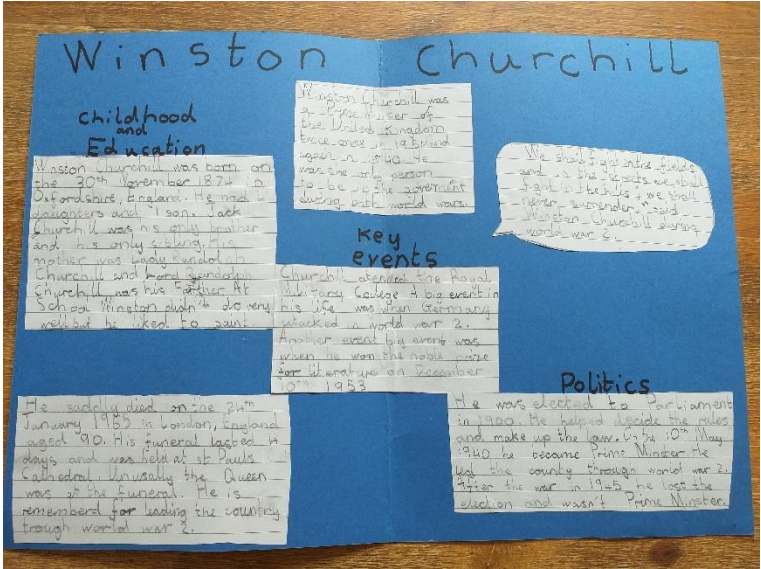 Winston Churchill
Childhood
and
Education
Winston Churchill was born on
the 30th November 1874 in
Oxfordshire, England. He had 4
daughters and 1 son. Jack
Churchill was his only brother
and his only sibling. His
mother was Lady Randolph
Churchill and Lord Randolph
Churchill was his Father. At
School Winston didn't do very
well but he liked to paint
Winston Churchill was
a Prime of
the United Kingdom
once in and
again in 1940. He
was the only person
to be in the
during both world wars.
We shall fight in the fields
and in the streets, we shall
fight in the hills, we shall
never surrender, said
Winston Churchill during
world war 2.
Key
events
Churchill atended the Royal
Military College A big event in
his life was when Germany
attacked in world war 2.
Another event big event was
when he won the noble prize
for literature on December
10th 1953
He saddly died on the 24th
January 1965 in London, England
aged 90. His funeral lasted 4
days and was held at st Pauls
Cathedral. Unusally the Queen
was at the funeral. He is
rememberd for leading the country
trough world war 2.
Politics
He was elected to Parliament
in 1900. He helped decide the rules
and make up the law. On the 10th May
1940 he became Prime Minster. He
led the county through world war 2.
After the war in 1945 he lost the
election and wasn't Prime Minster.